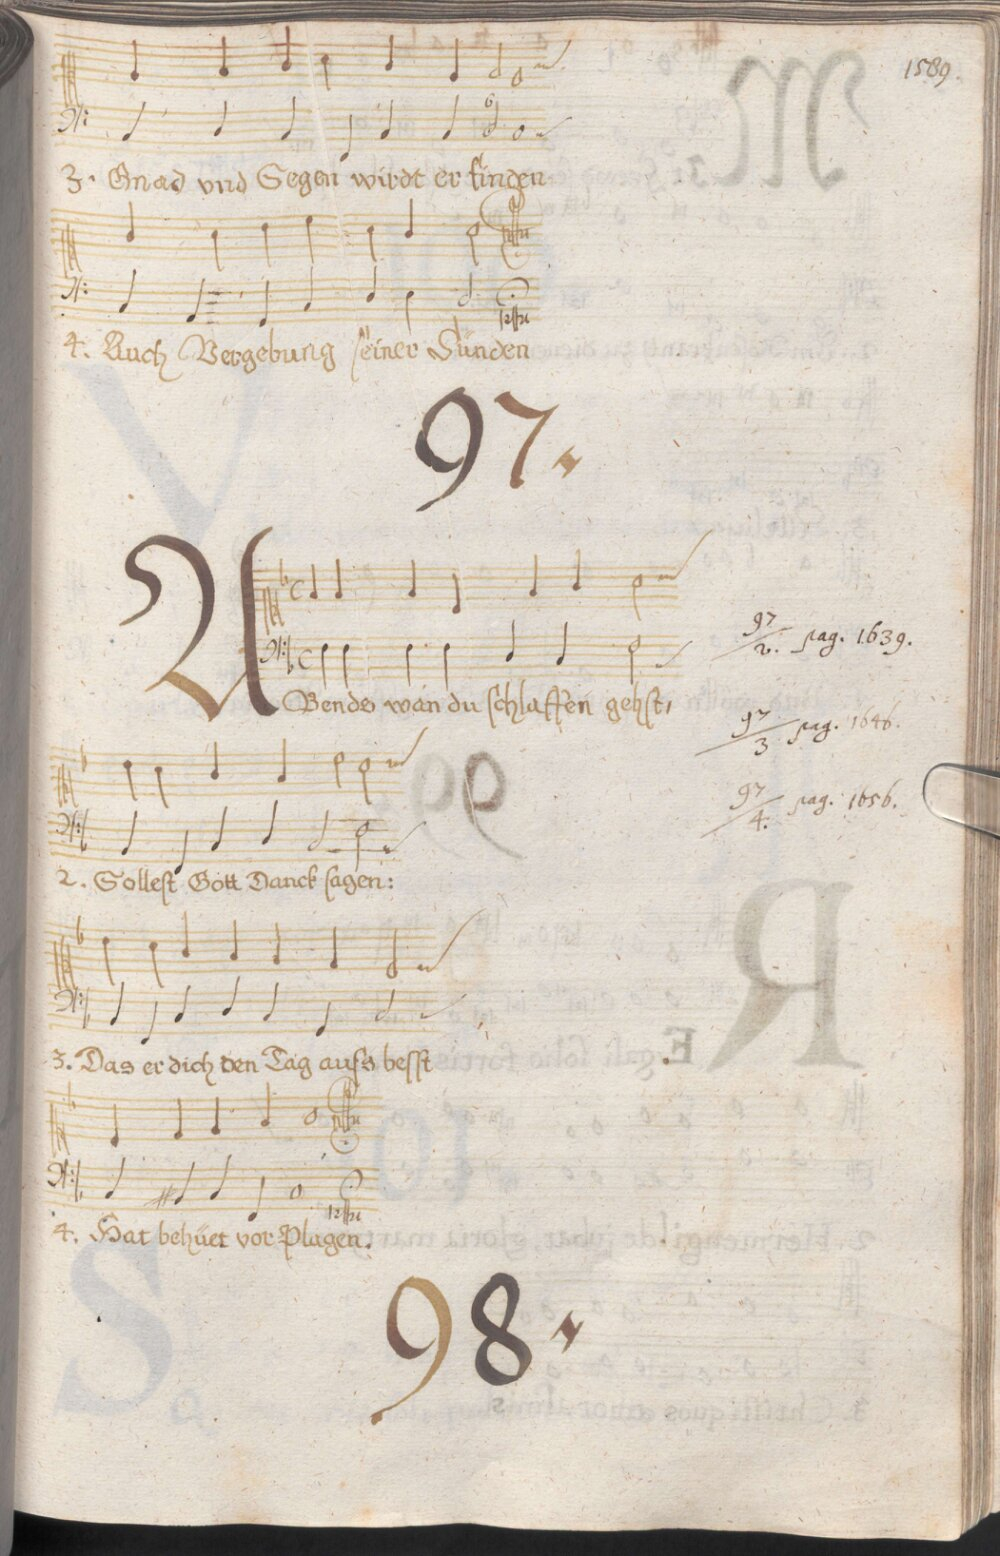 1589.
3. Gnad vnd Segen wirdt er finden
4. Auch Vergebung seiner Sünden
97.
ABends wan du schlaffen gehst,
97/2. pag. 1639.
97/3 pag. 1646.
97/4. pag. 1656.
2. Sollest Gott Danck sagen:
3. Das er dich den Tag aufs besst
4. Hat behüet vor Plagen.
98.